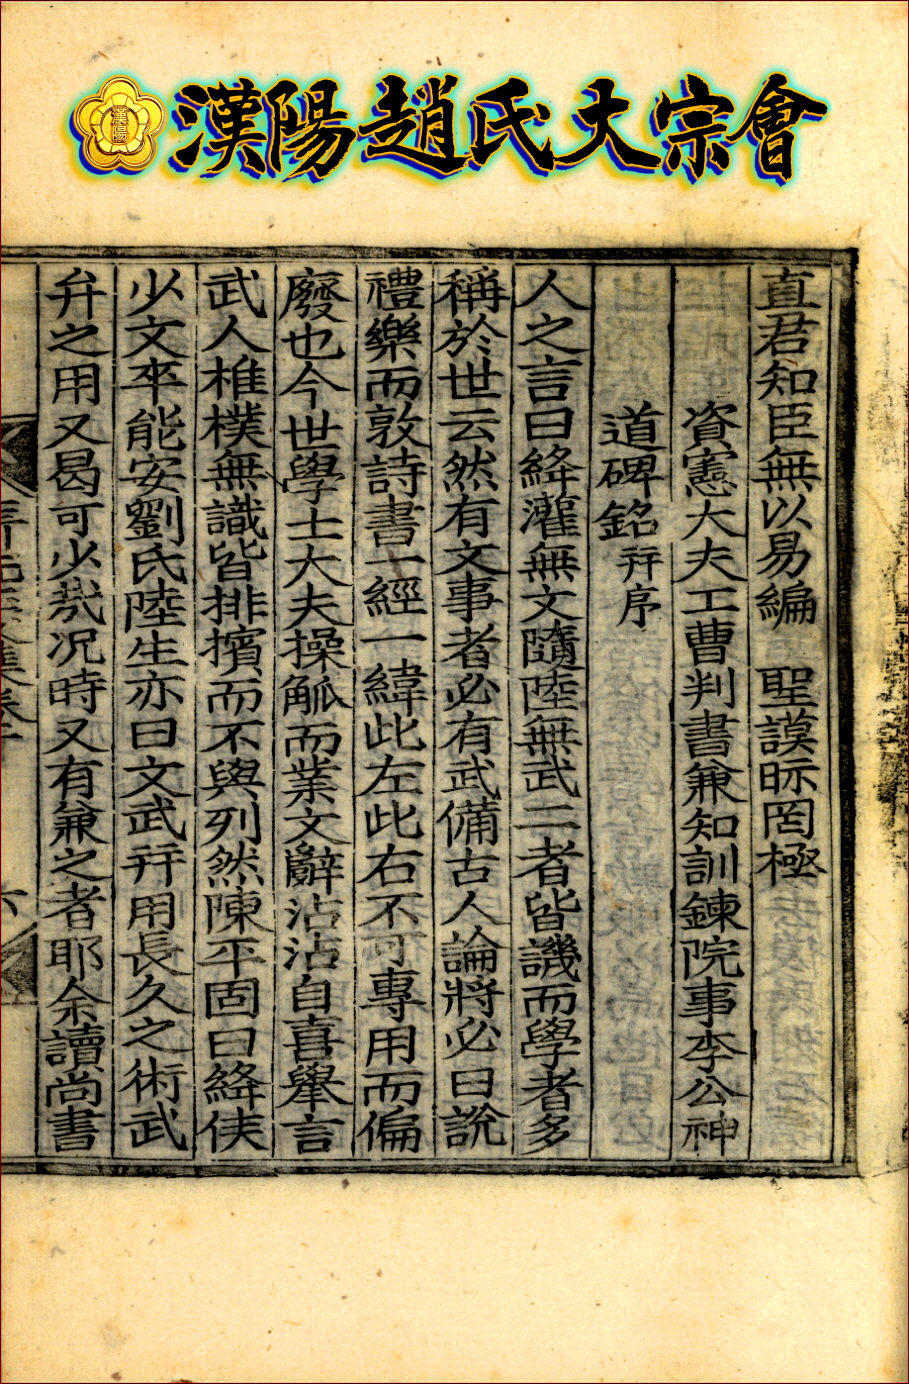 漢陽趙氏大宗會
漢陽
直君知臣無以易編 聖謨昹罔極
資憲大夫工曹判書兼知訓鍊院事李公神
道碑銘 幷序
人之言曰絳灌無文隨陸無武二者皆譏而學者多
稱於世云然有文事者必有武備古人論將必曰說
禮樂而敦詩書一經一緯此左此右不可專用而偏
廢也今世學士大夫操觚而業文辭沾沾自喜擧言
武人椎樸無識皆排擯而不與列然陳平固曰絳侯
少文卒能安劉氏陸生亦曰文武幷用長久之術武
弁之用又曷可少哉况時又有兼之者耶余讀尚書